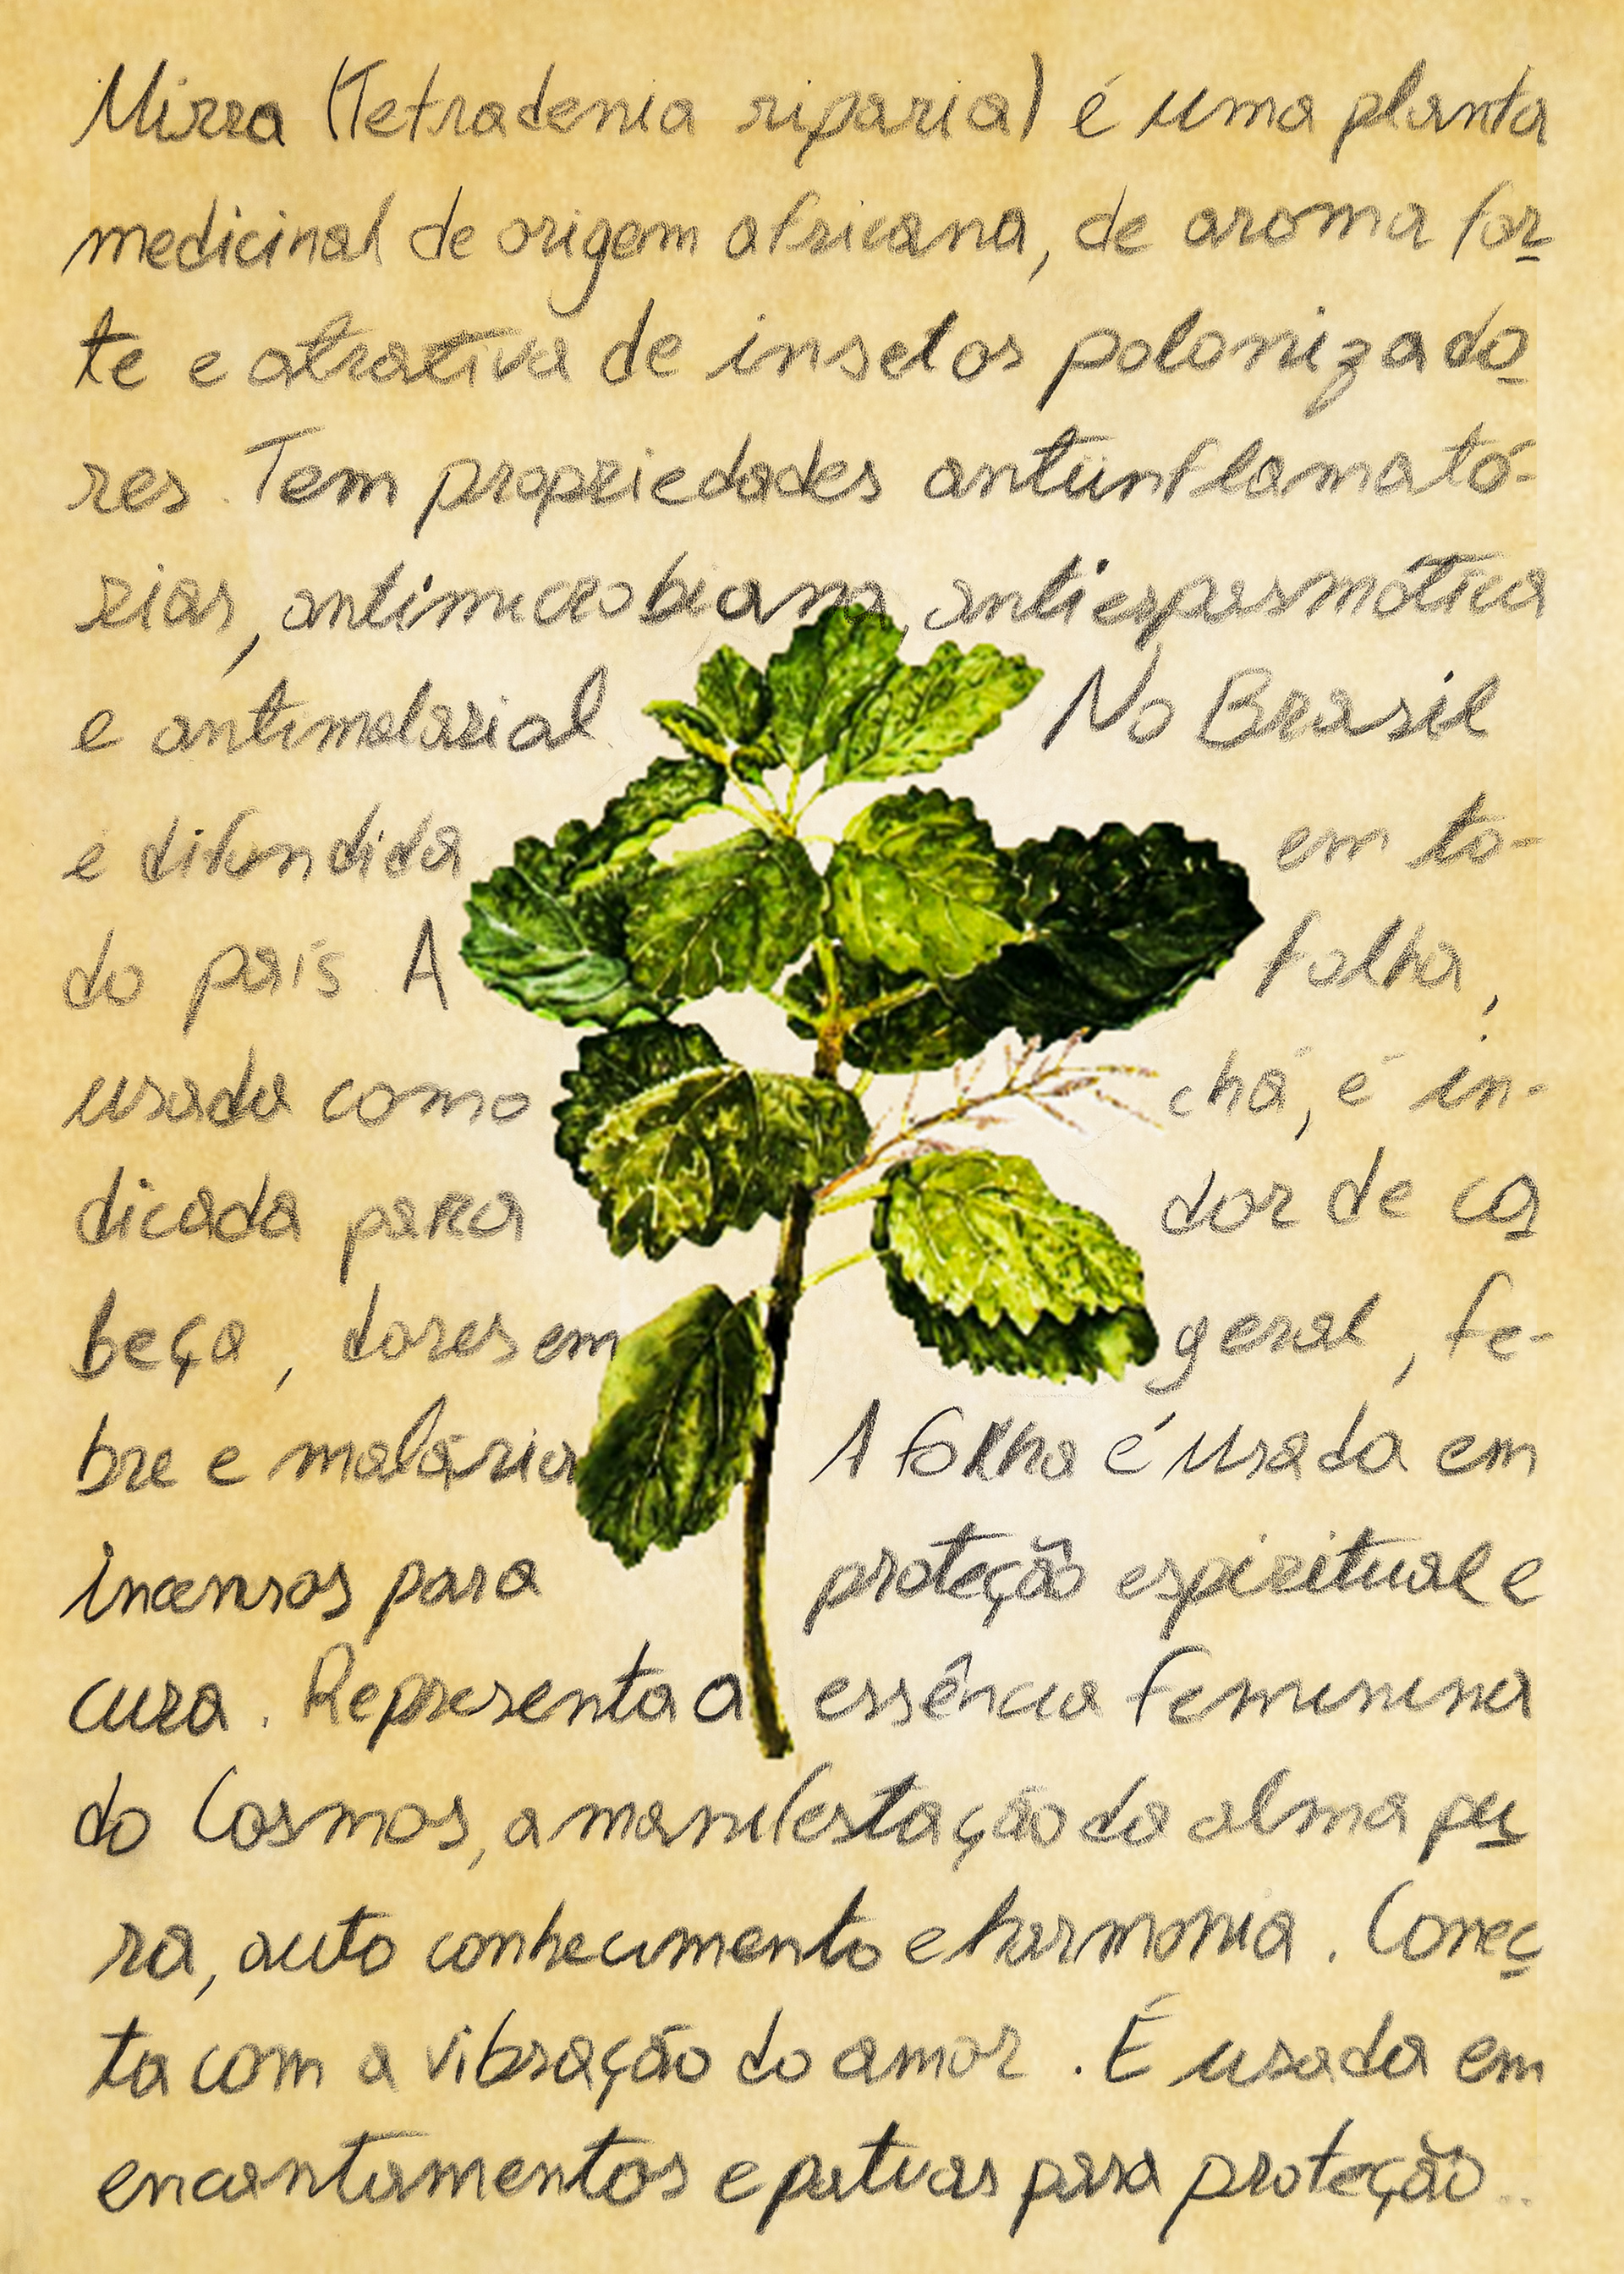 Mirra (Tetradenia riparia) é uma planta
medicinal de origem africana, de aroma for-
te e atrativa de insetos polonizado-
res. Tem propriedades antiinflamató-
rias, antimicrobiana, antiespasmótica
e antimalarial No Brasil
é difundida em to-
do país. A folha,
usada como chá, é in-
dicada para dor de ca-
beça, dores em geral, fe-
bre e malária A folha é usada em
incensos para proteção espiritual e
cura. Representa a essência feminina
do Cosmos, a manifestação da alma pu-
ra, auto conhecimento e harmonia. Conec-
ta com a vibração do amor. É usada em
encantamentos e patuas para proteção..